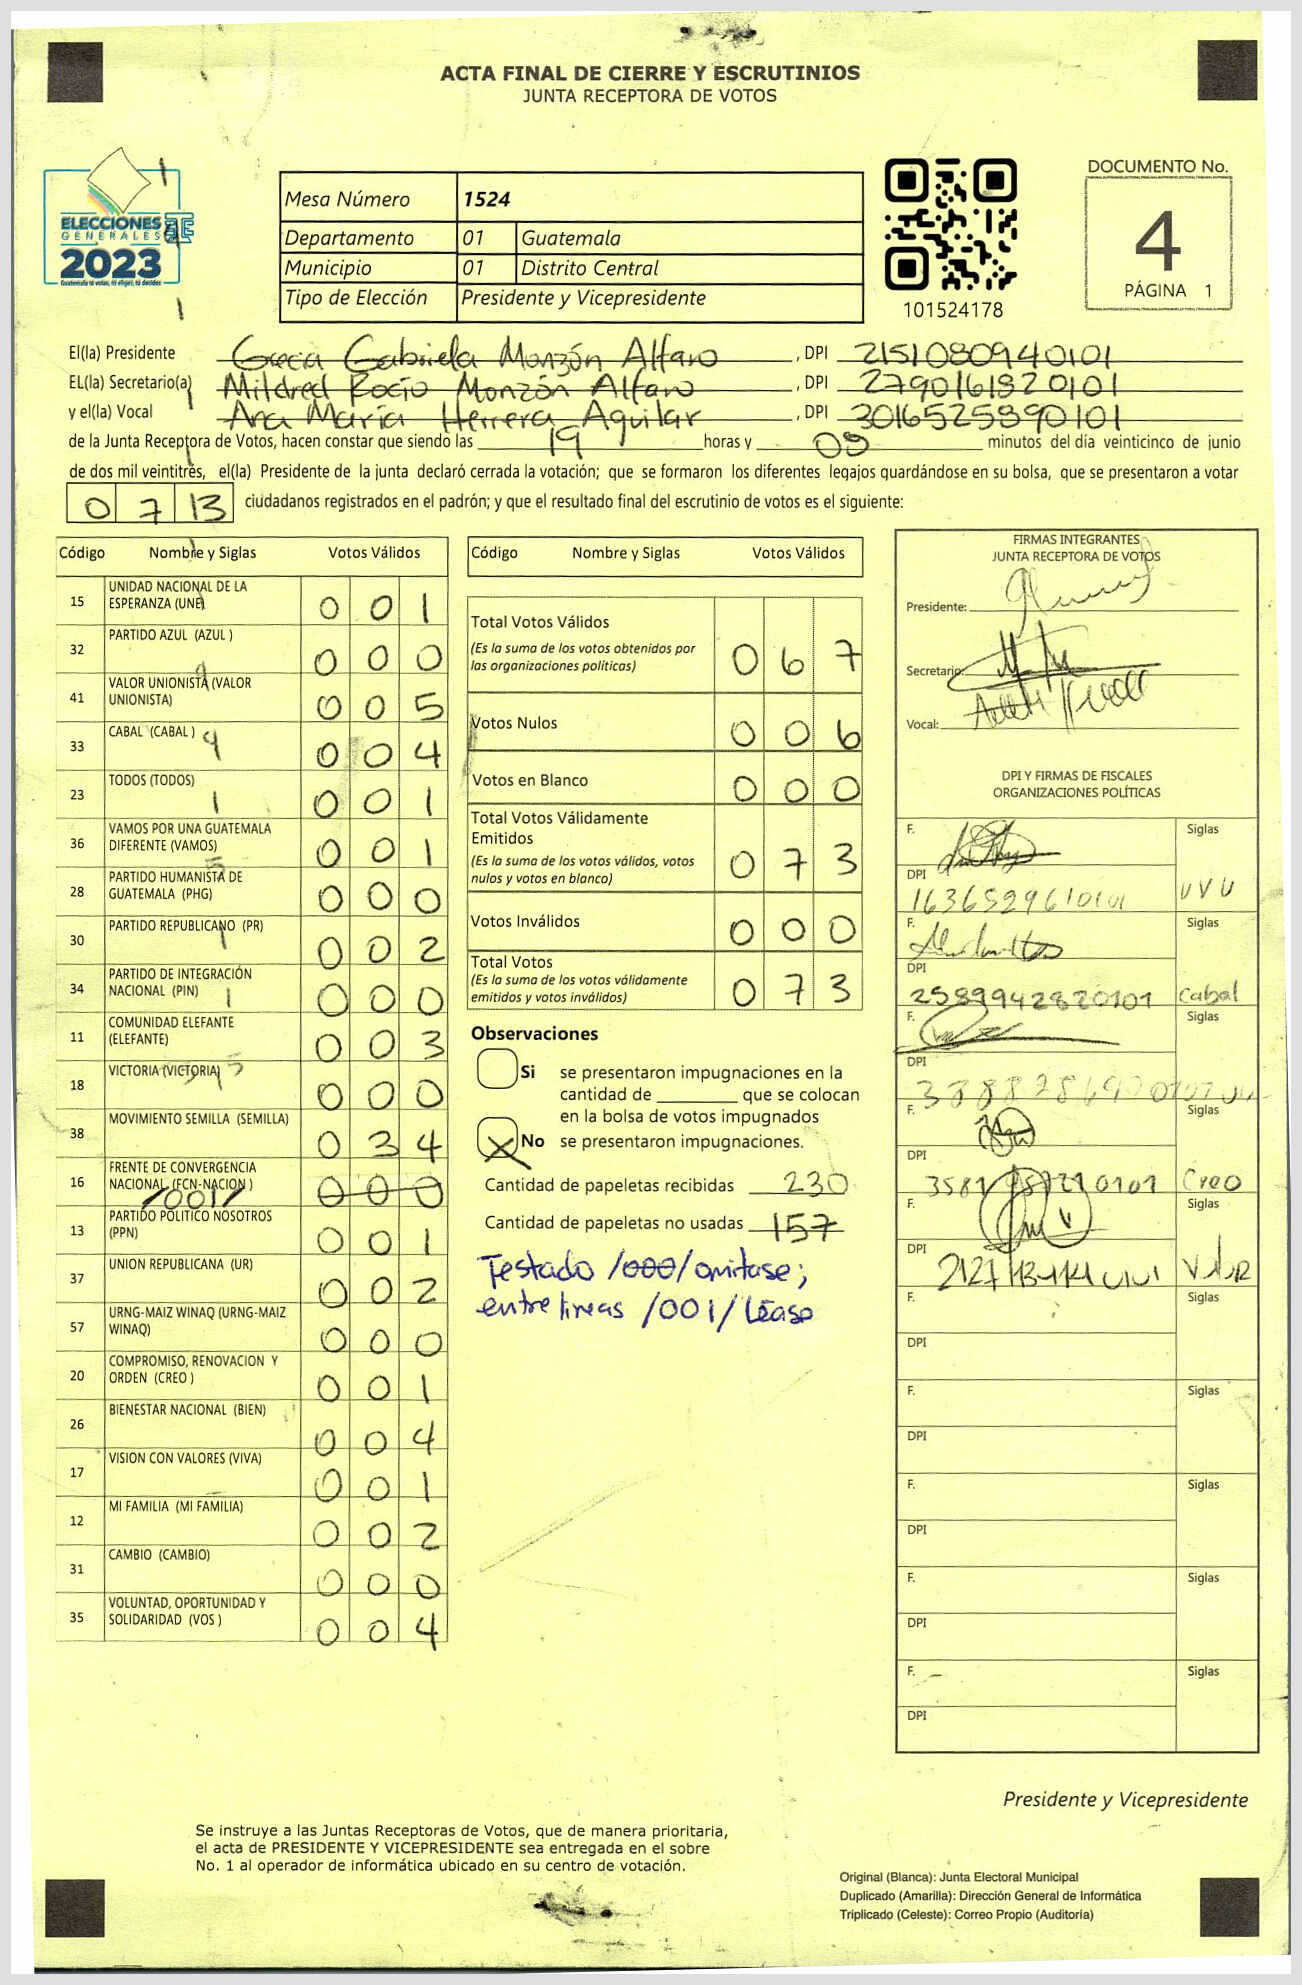 ACTA FINAL DE CIERRE Y ESCRUTINIOS
JUNTA RECEPTORA DE VOTOS
ELECCIONES
GENERALES
2023
Guatemala tú votas, tú eliges, tú decides
TSE
Mesa Número 1524
Departamento 01 Guatemala
Municipio 01 Distrito Central
Tipo de Elección Presidente y Vicepresidente
101524178
DOCUMENTO No.
4
PÁGINA 1
El(la) Presidente Gabriela Monzón Alfaro, DPI 2151080940101
EL(la) Secretario(a) Mildred Rocío Monzón Alfaro, DPI 2790161820101
y el(la) Vocal Ana María Herrera Aguilar, DPI 3016525890101
de la Junta Receptora de Votos, hacen constar que siendo las 19 horas y 09 minutos del día veinticinco de junio
de dos mil veintitrés, el(la) Presidente de la junta declaró cerrada la votación; que se formaron los diferentes legajos guardándose en su bolsa, que se presentaron a votar
0 7 13 ciudadanos registrados en el padrón; y que el resultado final del escrutinio de votos es el siguiente:
Código Nombre y Siglas Votos Válidos
15 UNIDAD NACIONAL DE LA ESPERANZA (UNE) 0 0 1
32 PARTIDO AZUL (AZUL ) 0 0 0
41 VALOR UNIONISTA (VALOR UNIONISTA) 0 0 5
33 CABAL (CABAL ) 0 0 4
23 TODOS (TODOS) 0 0 1
36 VAMOS POR UNA GUATEMALA DIFERENTE (VAMOS) 0 0 1
28 PARTIDO HUMANISTA DE GUATEMALA (PHG) 0 0 0
30 PARTIDO REPUBLICANO (PR) 0 0 2
34 PARTIDO DE INTEGRACIÓN NACIONAL (PIN) 0 0 0
11 COMUNIDAD ELEFANTE (ELEFANTE) 0 0 3
18 VICTORIA (VICTORIA) 0 0 0
38 MOVIMIENTO SEMILLA (SEMILLA) 0 3 4
16 FRENTE DE CONVERGENCIA NACIONAL (FCN-NACION ) /001/ 0 0 0
13 PARTIDO POLITICO NOSOTROS (PPN) 0 0 1
37 UNION REPUBLICANA (UR) 0 0 2
57 URNG-MAIZ WINAQ (URNG-MAIZ WINAQ) 0 0 0
20 COMPROMISO, RENOVACION Y ORDEN (CREO ) 0 0 1
26 BIENESTAR NACIONAL (BIEN) 0 0 4
17 VISION CON VALORES (VIVA) 0 0 1
12 MI FAMILIA (MI FAMILIA) 0 0 2
31 CAMBIO (CAMBIO) 0 0 0
35 VOLUNTAD, OPORTUNIDAD Y SOLIDARIDAD (VOS ) 0 0 4
Código Nombre y Siglas Votos Válidos
Total Votos Válidos 0 6 7
(Es la suma de los votos obtenidos por
las organizaciones políticas)
Votos Nulos 0 0 6
Votos en Blanco 0 0 0
Total Votos Válidamente
Emitidos 0 7 3
(Es la suma de los votos válidos, votos
nulos y votos en blanco)
Votos Inválidos 0 0 0
Total Votos 0 7 3
(Es la suma de los votos válidamente
emitidos y votos inválidos)
Observaciones
Si se presentaron impugnaciones en la
cantidad de ________ que se colocan
en la bolsa de votos impugnados
X No se presentaron impugnaciones.
Cantidad de papeletas recibidas 230
Cantidad de papeletas no usadas 157
Testado /000/ omitase;
entre lineas /001/ Léase
FIRMAS INTEGRANTES
JUNTA RECEPTORA DE VOTOS
Presidente:
Secretario:
Vocal:
DPI Y FIRMAS DE FISCALES
ORGANIZACIONES POLÍTICAS
F. Siglas
DPI
1636529610101 UVU
F. Siglas
DPI
2589942820101 Cabal
F. Siglas
DPI
F. Siglas
DPI
Creo
F. Siglas
DPI
Valor
F. Siglas
DPI
F. Siglas
DPI
F. Siglas
DPI
F. Siglas
DPI
F. Siglas
DPI
Presidente y Vicepresidente
Se instruye a las Juntas Receptoras de Votos, que de manera prioritaria,
el acta de PRESIDENTE Y VICEPRESIDENTE sea entregada en el sobre
No. 1 al operador de informática ubicado en su centro de votación.
Original (Blanca): Junta Electoral Municipal
Duplicado (Amarilla): Dirección General de Informática
Triplicado (Celeste): Correo Propio (Auditoría)